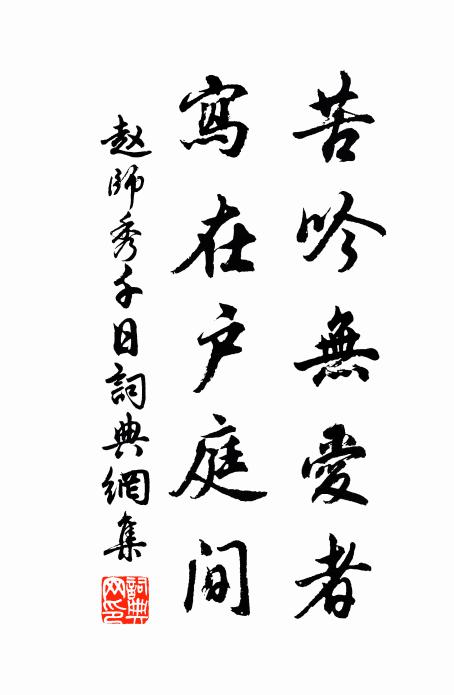 苦吟無愛者
寫在户庭间
赵師秀千日詞典網集
詞典網印